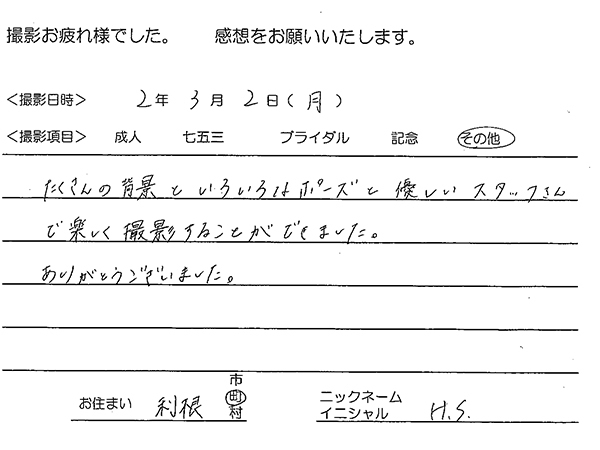 撮影お疲れ様でした。　　感想をお願いいたします。
＜撮影日時＞　2年 3月 2日（月）
＜撮影項目＞　成人　七五三　ブライダル　記念　その他
たくさんの背景といろいろなポーズと優しいスタッフさん
で楽しく撮影することができました。
ありがとうございました。
お住まい　利根　市町村　ニックネーム イニシャル　H.S.